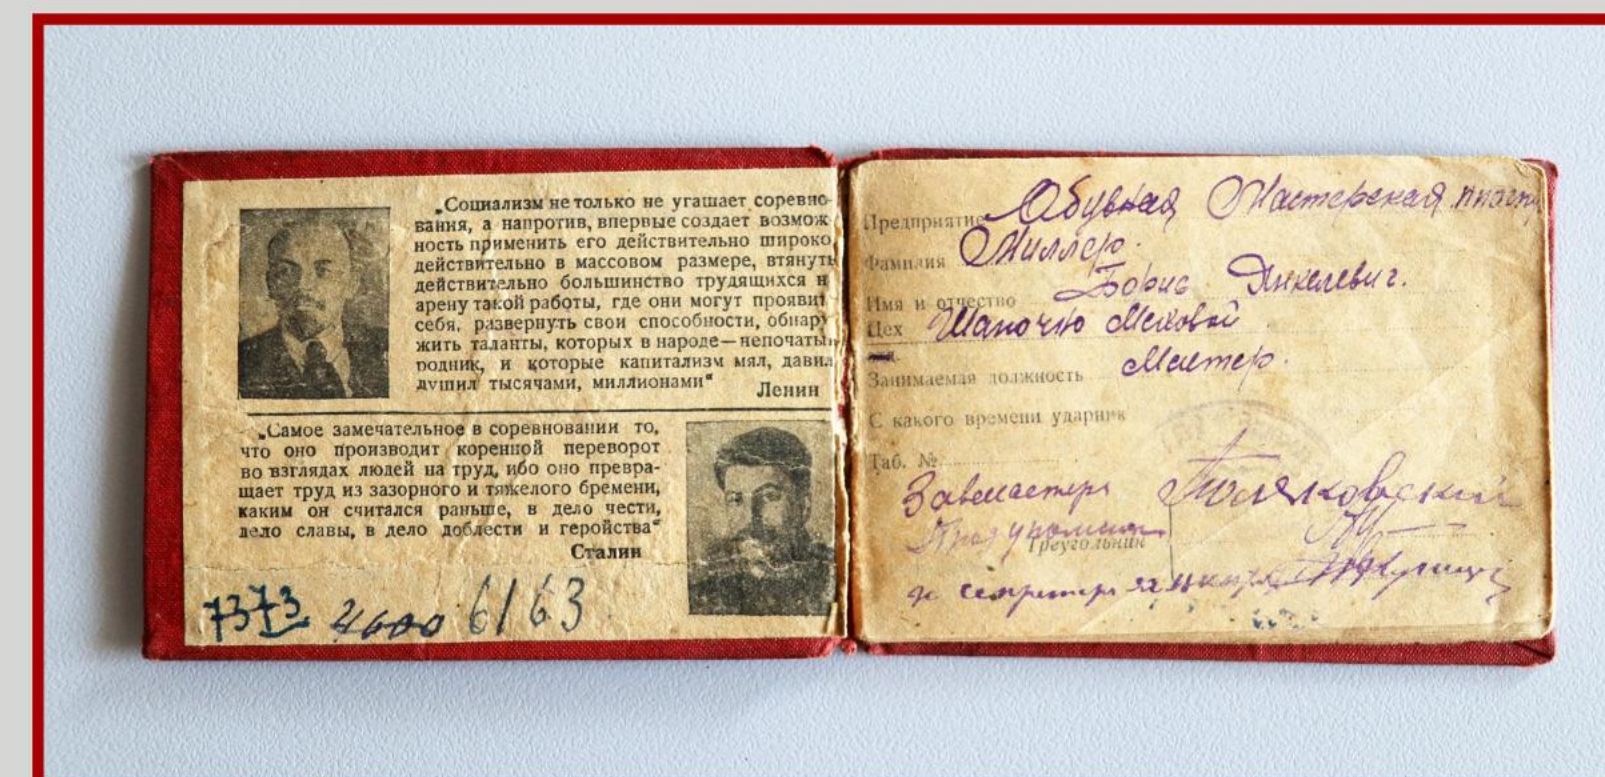 „Социализм не только не угашает соревно-
вания, а напротив, впервые создает возмож
ность применить его действительно широко
действительно в массовом размере, втянуть
действительно большинство трудящихся н
арену такой работы, где они могут проявит
себя, развернуть свои способности, обнару
жить таланты, которых в народе—непочатый
родник, и которые капитализм мял, давил
душил тысячами, миллионами“
Ленин
„Самое замечательное в соревновании то,
что оно производит коренной переворот
во взглядах людей на труд, ибо оно превра-
щает труд из зазорного и тяжелого бремени,
каким он считался раньше, в дело чести,
дело славы, в дело доблести и геройства“
Сталин
7373 4600 6163
Предприятие Обувная Мастерская
Фамилия Миллер.
Имя и отчество Борис Янкелевич.
Цех Шапочно Меховой
Занимаемая должность Мастер.
С какого времени ударник
Таб. №
Завмастера
Треугольник